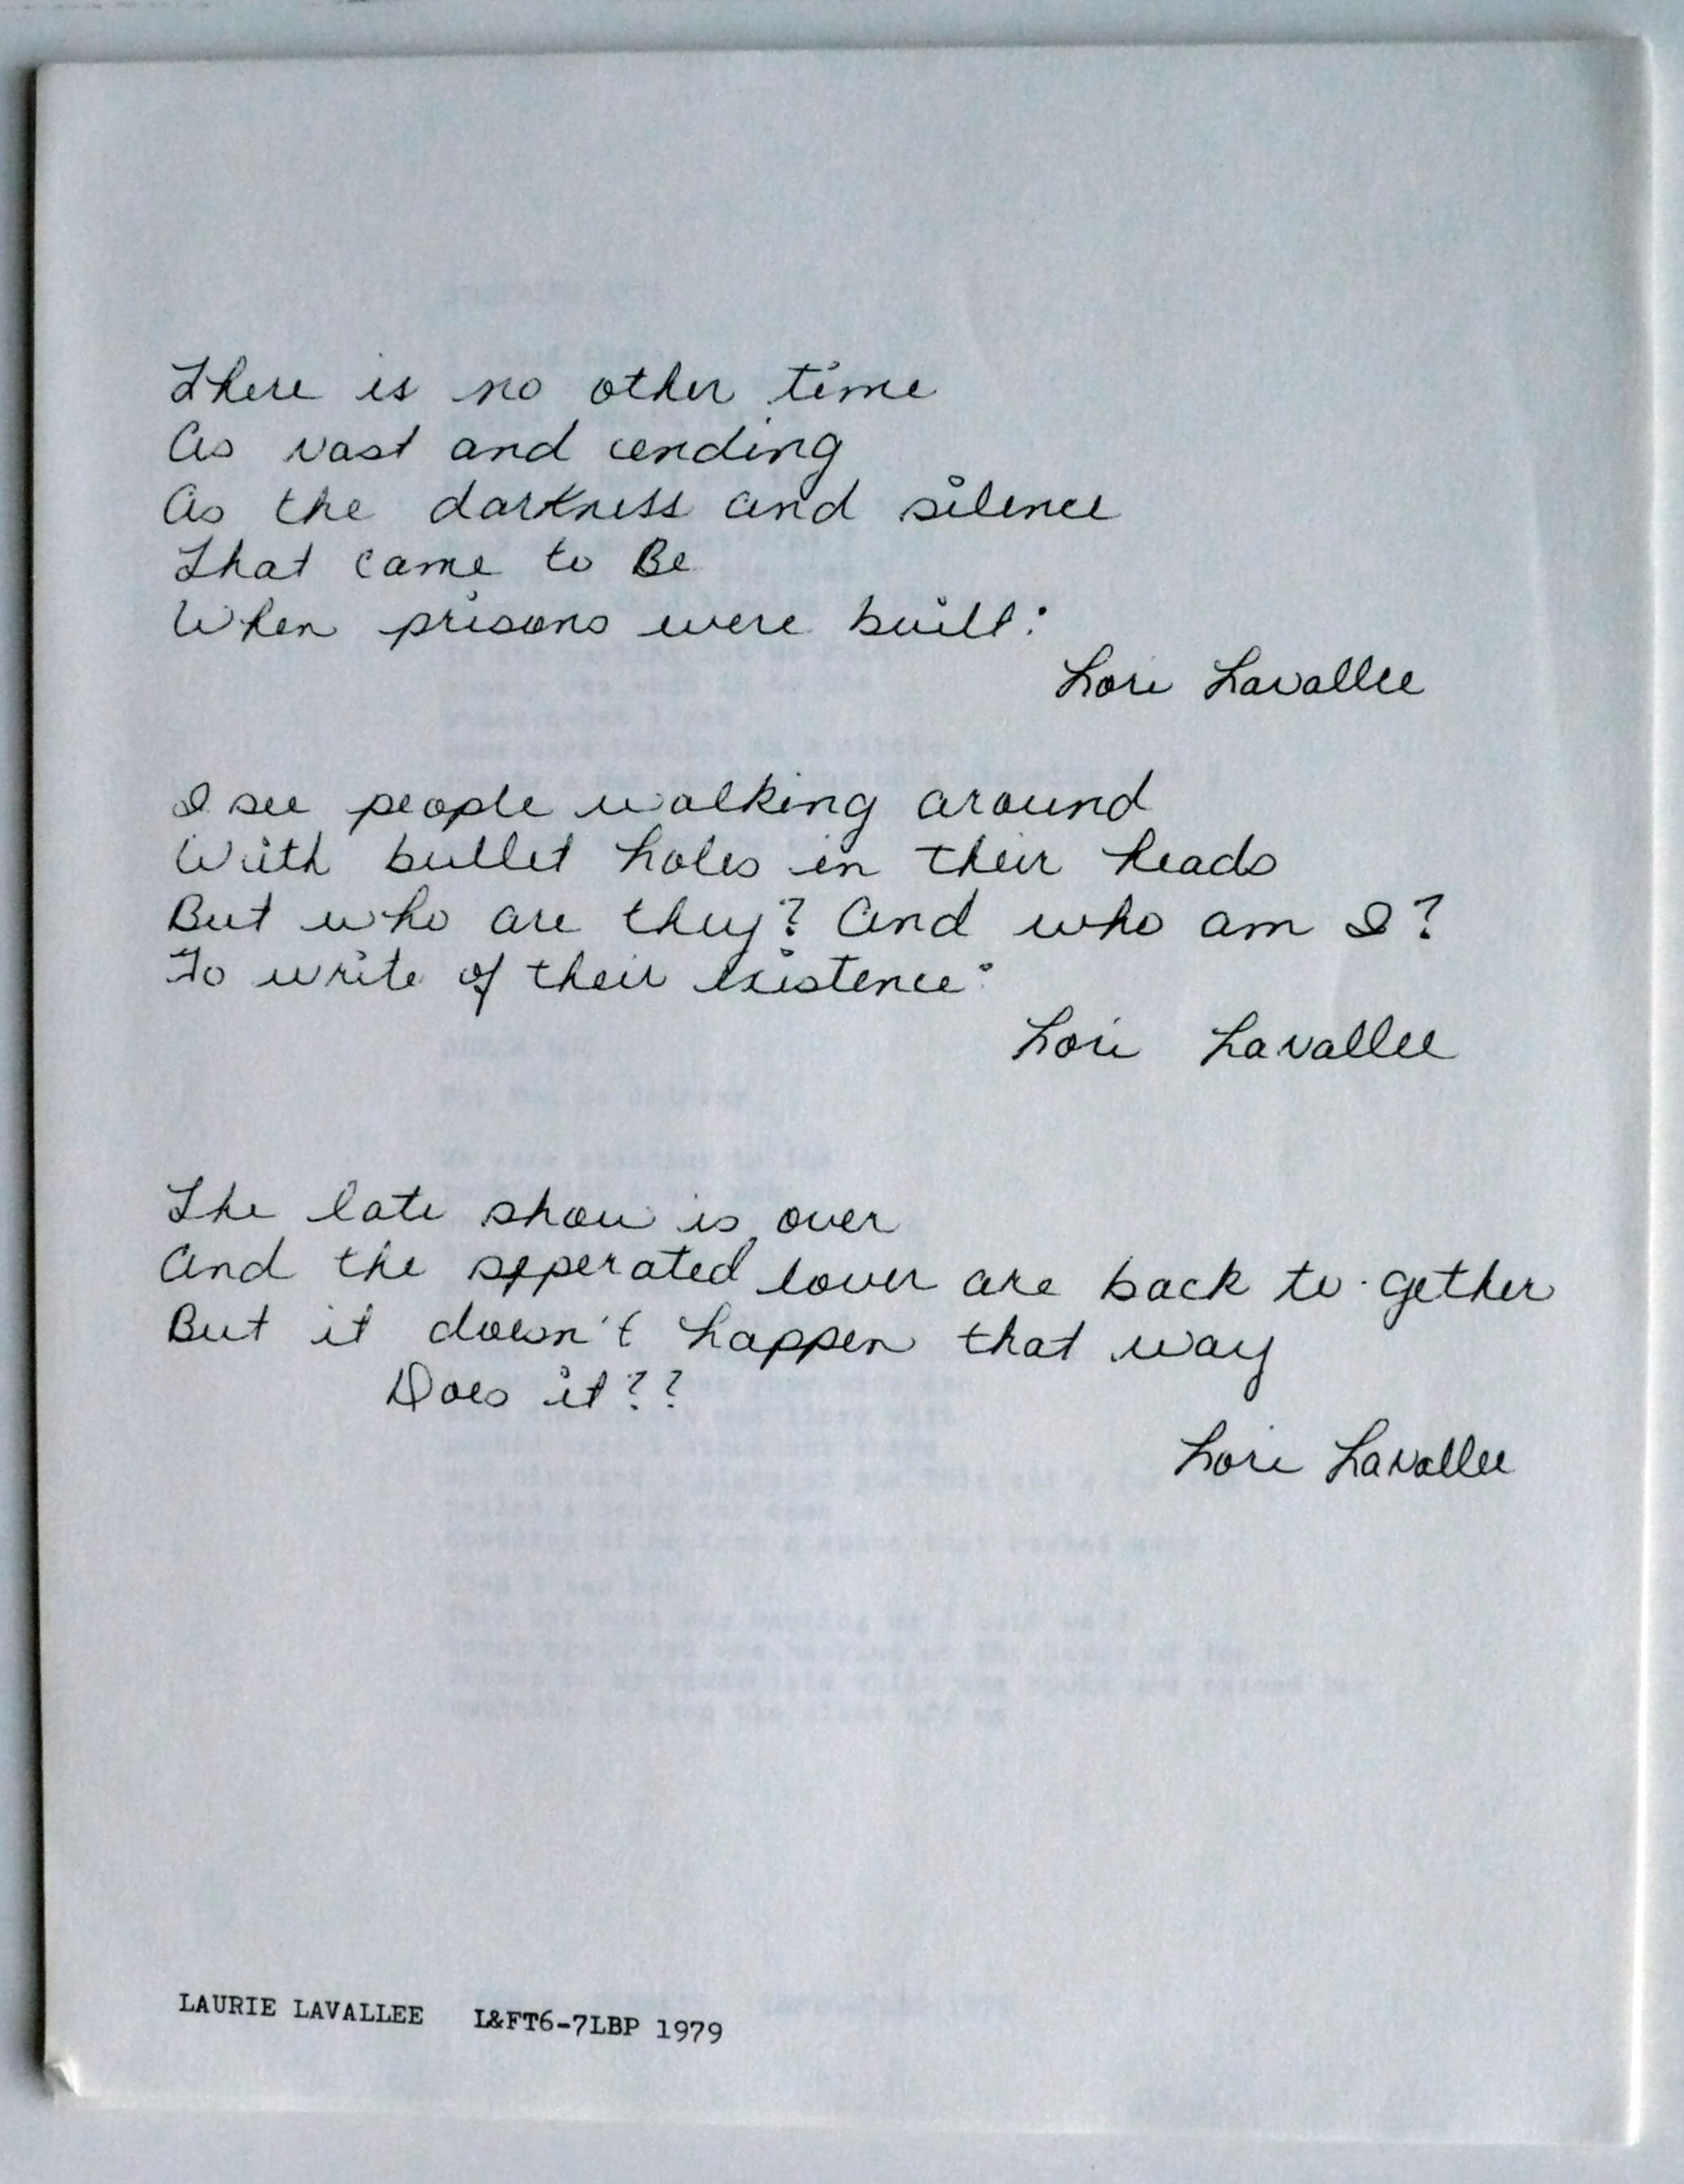 There is no other time
As vast and cending
As the darkness and silence
That came to Be
When prisons were built:
Lori Lavallee
I see people walking around
With bullet holes in their heads
But who are they? And who am I?
To write of their existence:
Lori Lavallee
The late show is over
And the seperated lover are back to.gether
But it doesn't happen that way
Does it??
Lori Lavallee
LAURIE LAVALLEE L&FT6-7LBP 1979